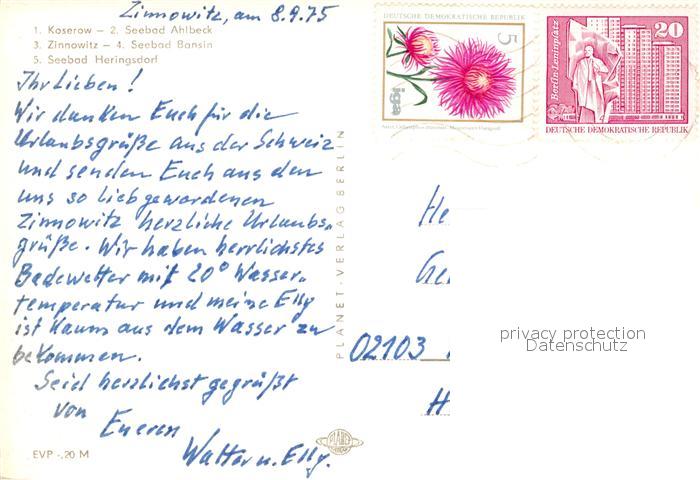 Zinnowitz, am 8.9.75
1. Koserow – 2. Seebad Ahlbeck
3. Zinnowitz – 4. Seebad Bansin
5. Seebad Heringsdorf
Ihr Lieben!
Wir danken Euch für die
Urlaubsgrüße aus der Schweiz
und senden Euch aus den
uns so liebgewordenen
Zinnowitz herzliche Urlaubs-
grüße. Wir haben herrlichstes
Badewetter mit 20° Wasser-
temperatur und meine Elly
ist kaum aus dem Wasser zu
bekommen.
Seid herzlichst gegrüßt
von
Eueren
Walter u. Elly.
EVP -,20 M
PLANET-VERLAG BERLIN
PLANET
DEUTSCHE DEMOKRATISCHE REPUBLIK
5
iga
20
Berlin-Leninplatz
DEUTSCHE DEMOKRATISCHE REPUBLIK
He
Ge
02103
H
privacy protection
Datenschutz